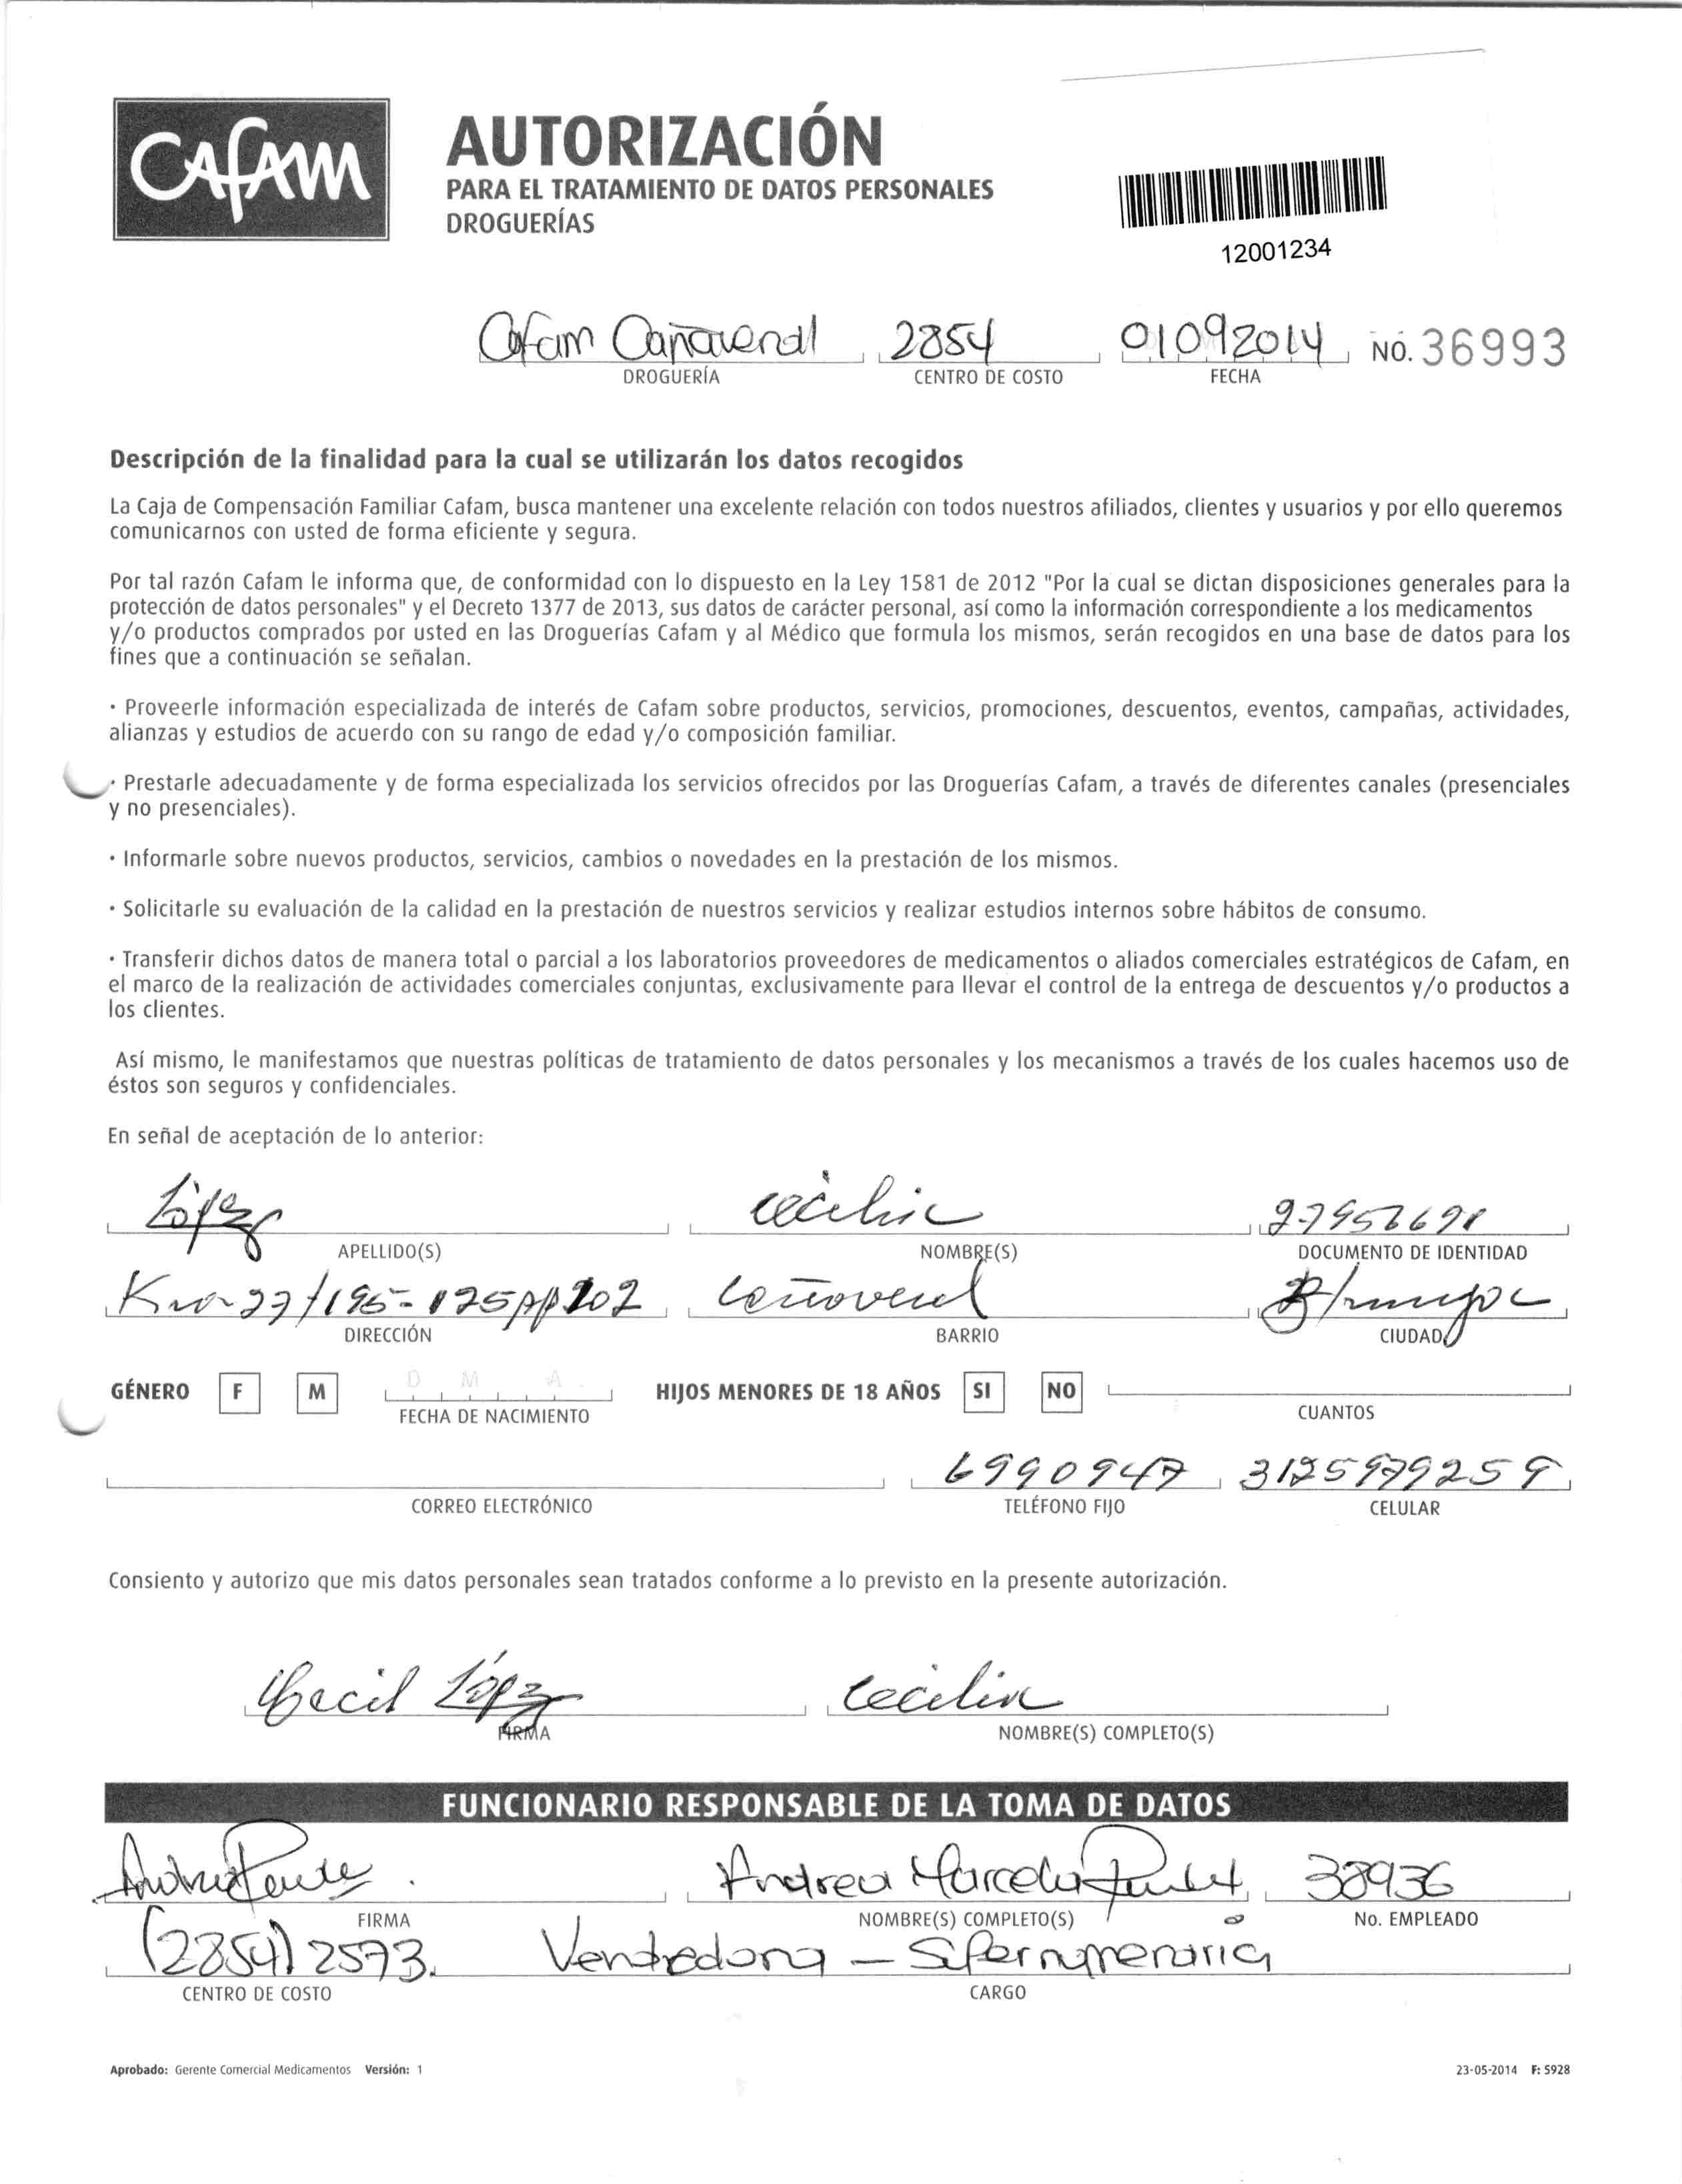 CAFAM
AUTORIZACIÓN
PARA EL TRATAMIENTO DE DATOS PERSONALES
DROGUERÍAS
12001234
Cafam Cañaveral 2854 01092014 NO. 36993
DROGUERÍA CENTRO DE COSTO FECHA
Descripción de la finalidad para la cual se utilizarán los datos recogidos
La Caja de Compensación Familiar Cafam, busca mantener una excelente relación con todos nuestros afiliados, clientes y usuarios y por ello queremos
comunicarnos con usted de forma eficiente y segura.
Por tal razón Cafam le informa que, de conformidad con lo dispuesto en la Ley 1581 de 2012 "Por la cual se dictan disposiciones generales para la
protección de datos personales" y el Decreto 1377 de 2013, sus datos de carácter personal, así como la información correspondiente a los medicamentos
y/o productos comprados por usted en las Droguerías Cafam y al Médico que formula los mismos, serán recogidos en una base de datos para los
fines que a continuación se señalan.
· Proveerle información especializada de interés de Cafam sobre productos, servicios, promociones, descuentos, eventos, campañas, actividades,
alianzas y estudios de acuerdo con su rango de edad y/o composición familiar.
· Prestarle adecuadamente y de forma especializada los servicios ofrecidos por las Droguerías Cafam, a través de diferentes canales (presenciales
y no presenciales).
· Informarle sobre nuevos productos, servicios, cambios o novedades en la prestación de los mismos.
· Solicitarle su evaluación de la calidad en la prestación de nuestros servicios y realizar estudios internos sobre hábitos de consumo.
· Transferir dichos datos de manera total o parcial a los laboratorios proveedores de medicamentos o aliados comerciales estratégicos de Cafam, en
el marco de la realización de actividades comerciales conjuntas, exclusivamente para llevar el control de la entrega de descuentos y/o productos a
los clientes.
Así mismo, le manifestamos que nuestras políticas de tratamiento de datos personales y los mecanismos a través de los cuales hacemos uso de
éstos son seguros y confidenciales.
En señal de aceptación de lo anterior:
López cecilia
APELLIDO(S) NOMBRE(S) DOCUMENTO DE IDENTIDAD
Cañaveral
DIRECCIÓN BARRIO CIUDAD
GÉNERO F M D M A HIJOS MENORES DE 18 AÑOS SI NO
FECHA DE NACIMIENTO CUANTOS
6990947
CORREO ELECTRÓNICO TELÉFONO FIJO CELULAR
Consiento y autorizo que mis datos personales sean tratados conforme a lo previsto en la presente autorización.
López Cecilia
FIRMA NOMBRE(S) COMPLETO(S)
FUNCIONARIO RESPONSABLE DE LA TOMA DE DATOS
Andrea Marcela 38936
FIRMA NOMBRE(S) COMPLETO(S) No. EMPLEADO
(2854) 2573.
CENTRO DE COSTO CARGO
Aprobado: Gerente Comercial Medicamentos Versión: 1 23-05-2014 F: 5928